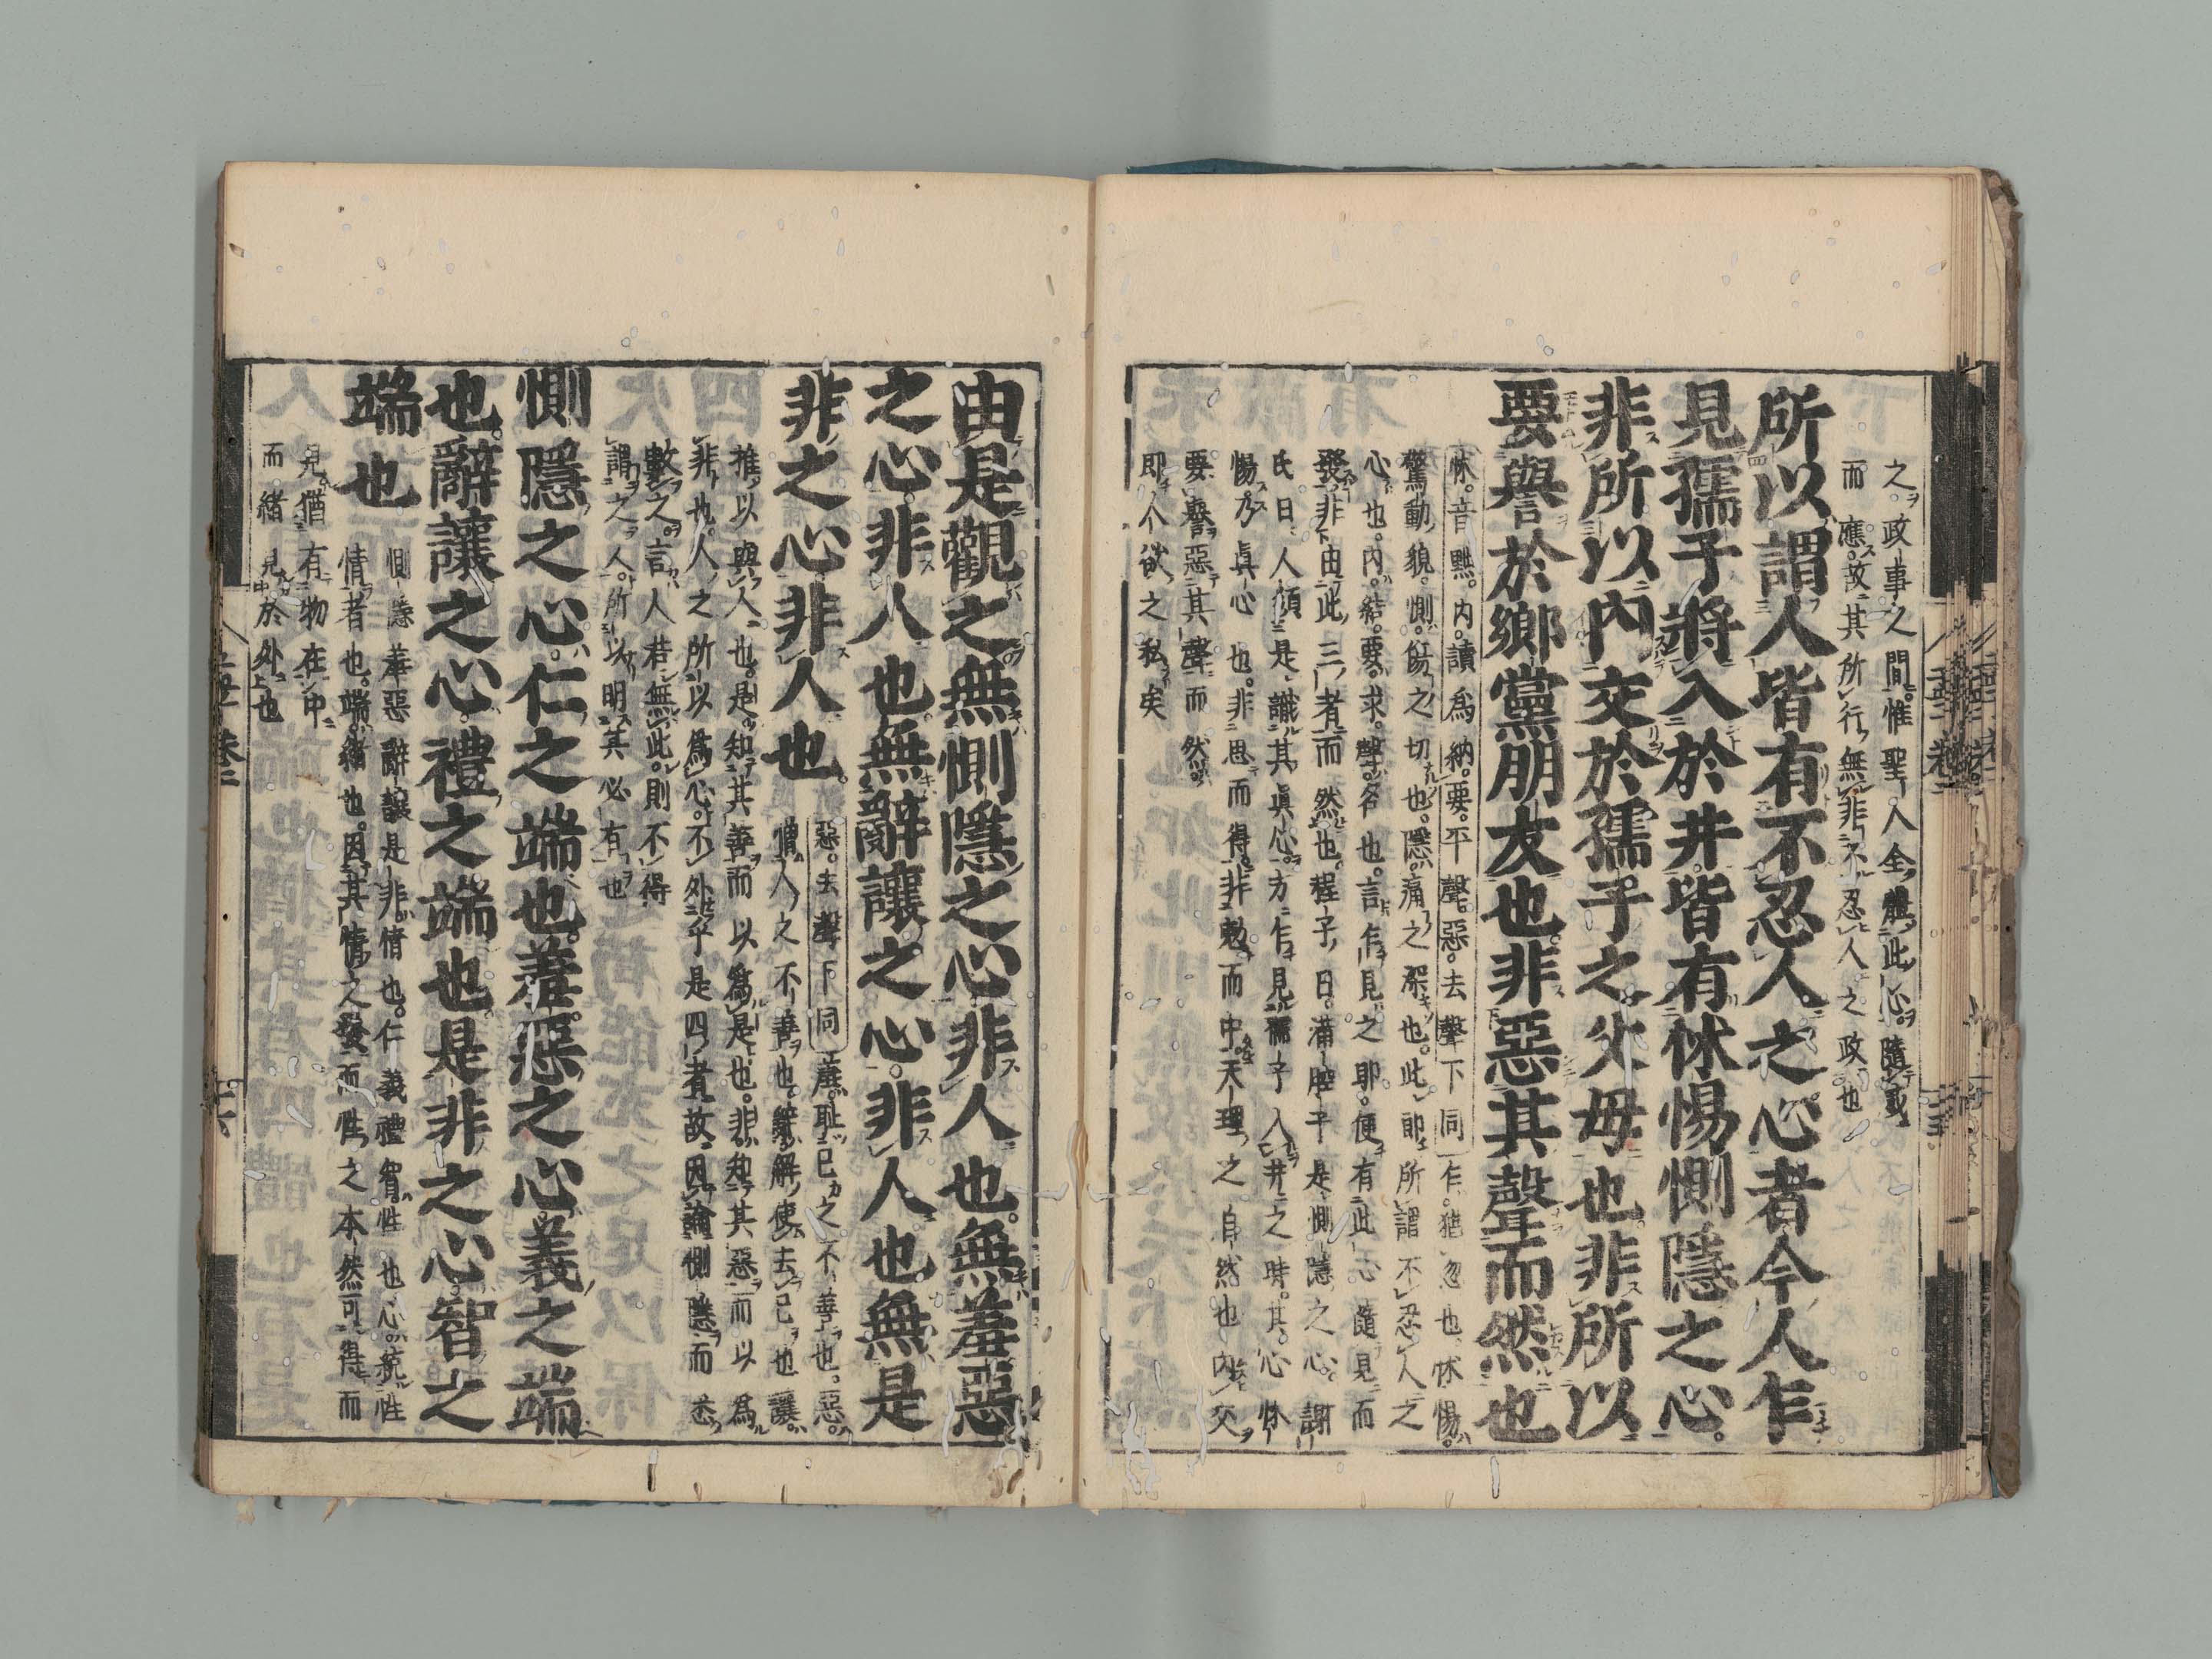 之政事之間惟聖人全體此心隨感
而應故其所行無非不忍人之政也
所以謂人皆有不忍人之心者今人乍
見孺子將入於井皆有怵惕惻隱之心
非所以內交於孺子之父母也非所以
要譽於鄉黨朋友也非惡其聲而然也
怵音黜內讀爲納要平聲惡去聲下同乍猶忽也怵惕
驚動貌惻傷之切也隱痛之深也此即所謂不忍人之
心也內結要求聲名也言乍見之時便有此心隨見而
發非由此三者而然也程子曰滿腔子是惻隱之心謝
氏曰人須是識其眞心方乍見孺子入井之時其心怵
惕乃眞心也非思而得非勉而中天理之自然也內交
要譽惡其聲而然
即人欲之私矣
由是觀之無惻隱之心非人也無羞惡
之心非人也無辭讓之心非人也無是
非之心非人也
惡去聲下同羞恥己之不善也惡
憎人之不善也辭解使去己也讓
推以與人也是知其善而以爲是也非知其惡而以爲
非也人之所以爲心不外乎是四者故因論惻隱而悉
數之言人若無此則不得
謂之人所以明其必有也
惻隱之心仁之端也羞惡之心義之端
也辭讓之心禮之端也是非之心智之
端也
惻隱羞惡辭讓是非情也仁義禮智性也心統性
情者也端緒也因其情之發而性之本然可得而
見猶有物在中
而緒見於外也
孟子卷二